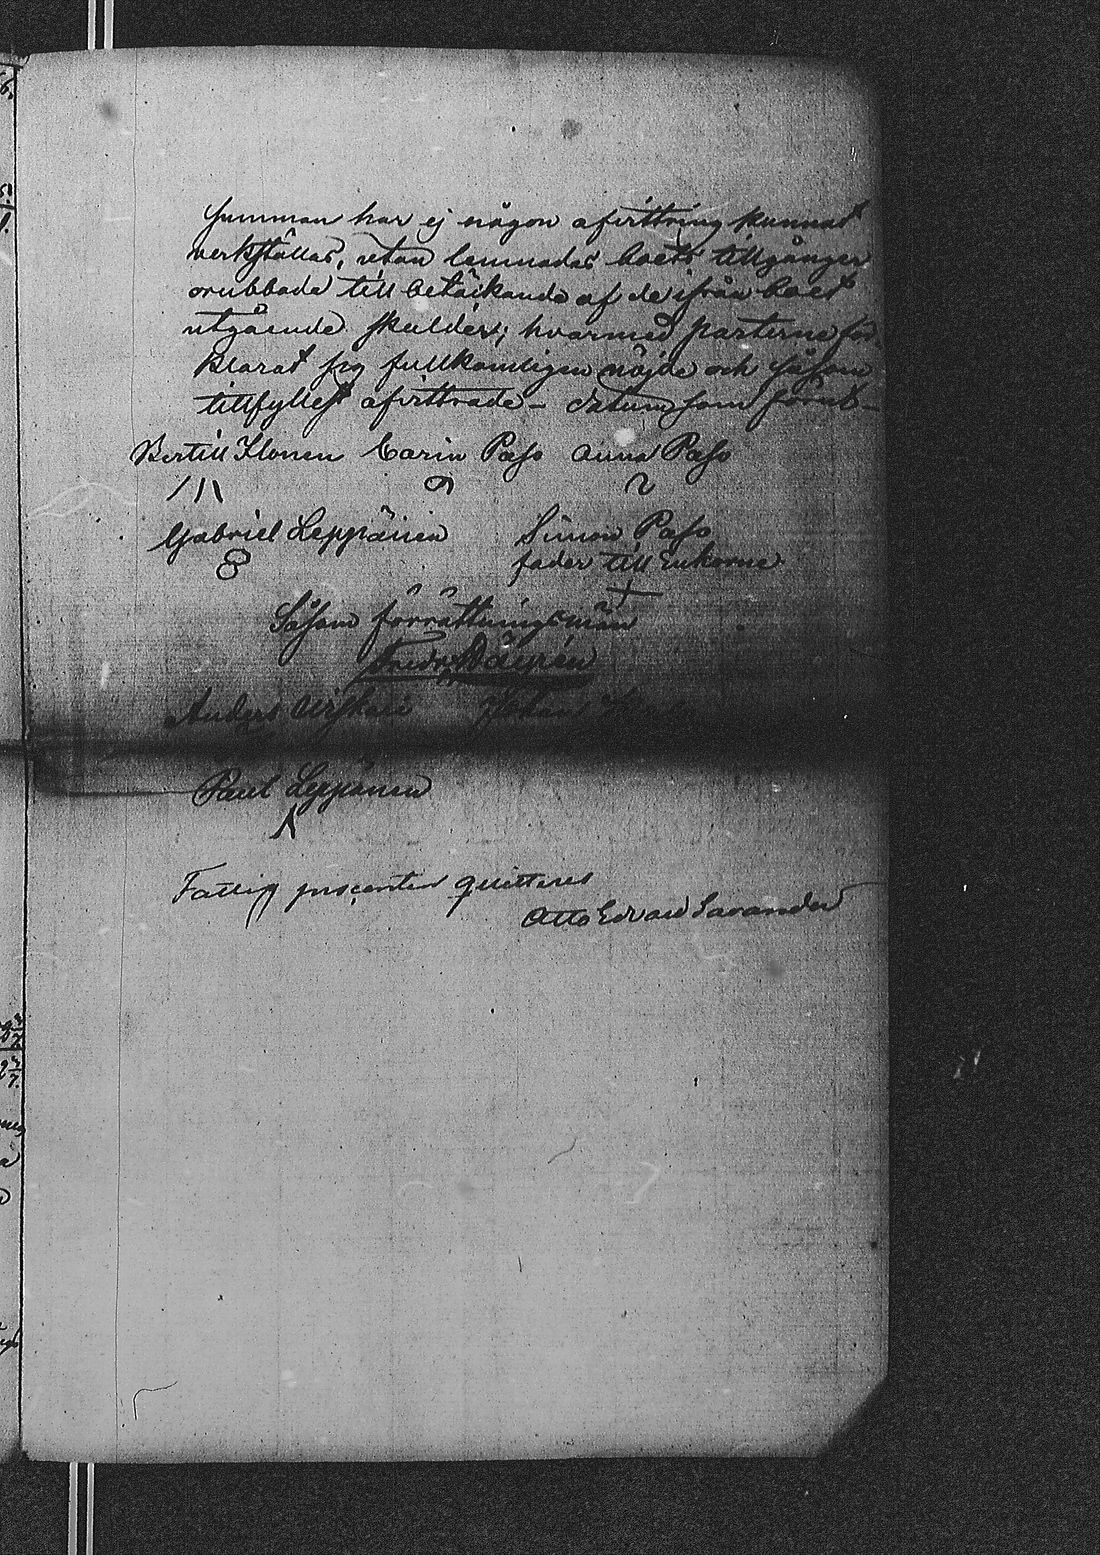 summan har ej någon afvittring kunnat
verkställas, utan lemnades boets tillgångar
orubbade till betäckande af de ifrån boet
utgående skulder; hvarmed parterne för-
klarat sig fullkomligen nöjde och såsom
tillfyllest afvittrade – datum som förut –
Bertill Ilonen Carin Paso Anna Paso
Gabriel Leppänen Simon Paso
fader till Enkorne
Såsom förrättningsmän
Fredr.
Anders Johan
Paul Leppänen
Fattig procenten quitteras
Otto Edvard Savander